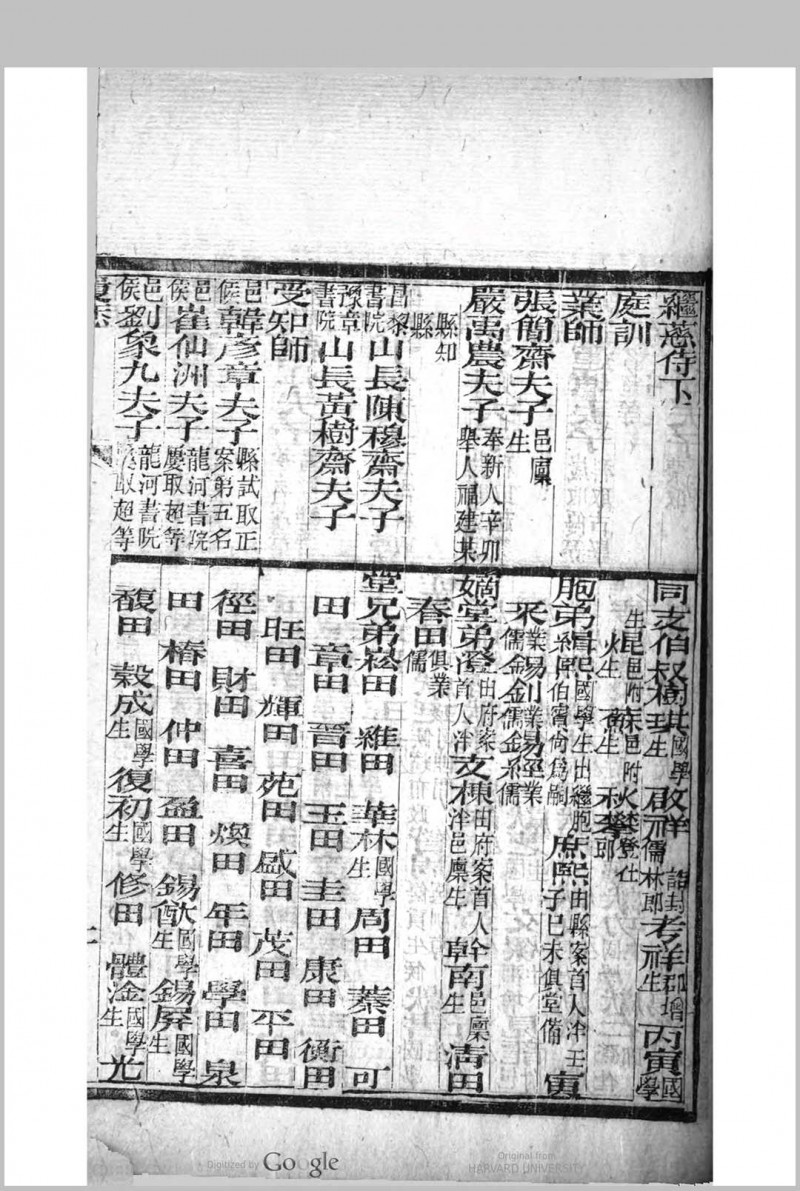 繼慈侍下
庭訓
業師
張簡齋夫子邑廩生
嚴禹農夫子奉新人辛卯舉人福建某
縣知縣
昌黎書院山長陳穆齋夫子
豫章書院山長黃樹齋夫子
受知師
邑侯韓彥章夫子縣試取正案第五名
邑侯崔仙洲夫子龍河書院屢取超等
邑侯劉象九夫子龍河書院屢取超等
同支伯叔樹琪國學生 啟祥誥封儒林郎 考祥郡增生 丙寅國學
生 焜邑附生 蘇邑附生
胞弟緝熙國學生出繼胞伯賓尚爲嗣 庶熙田縣案首入泮壬子己未俱堂備 寅
采業儒 錫金業儒
嫡女
堂弟澄田府案首入泮 文棟田府案首入泮邑廩生 乾南邑廩生 清田
春田俱業儒
堂兄弟崧田 維田 華林國學生 周田 蓁田 可
田 章田 晉田 玉田 圭田 康田 衡田
旺田 輝田 苑田 盛田 茂田 平田
徑田 財田 喜田 煥田 年田 學田 泉
田 椿田 仲田 盈田 錫猷國學生 錫屏國學生
馥田 榖成國學生 復初國學生 修田 體淦國學生 光
Digitized by Google
Original from
HARVARD UNIVERSITY